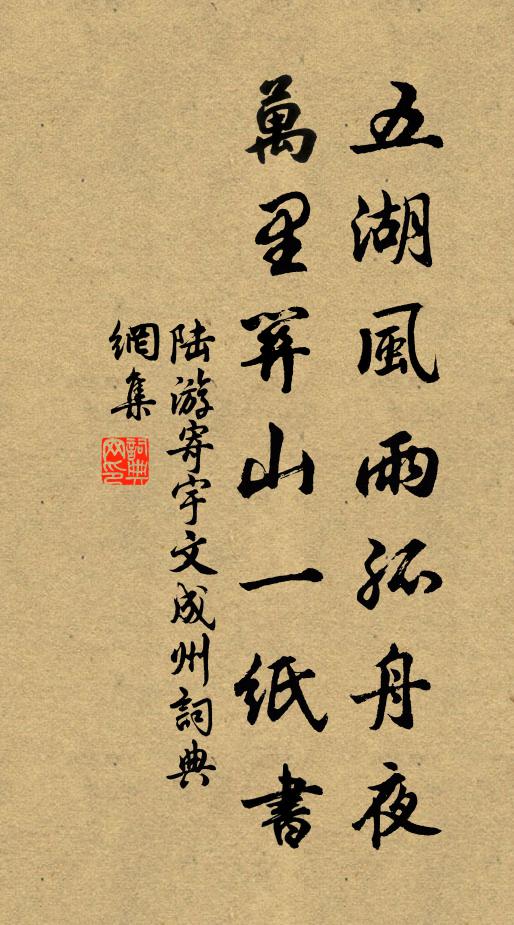 五湖風雨孤舟夜
萬里關山一紙書
陸游寄宇文成州詞典
網集
詞典
网印